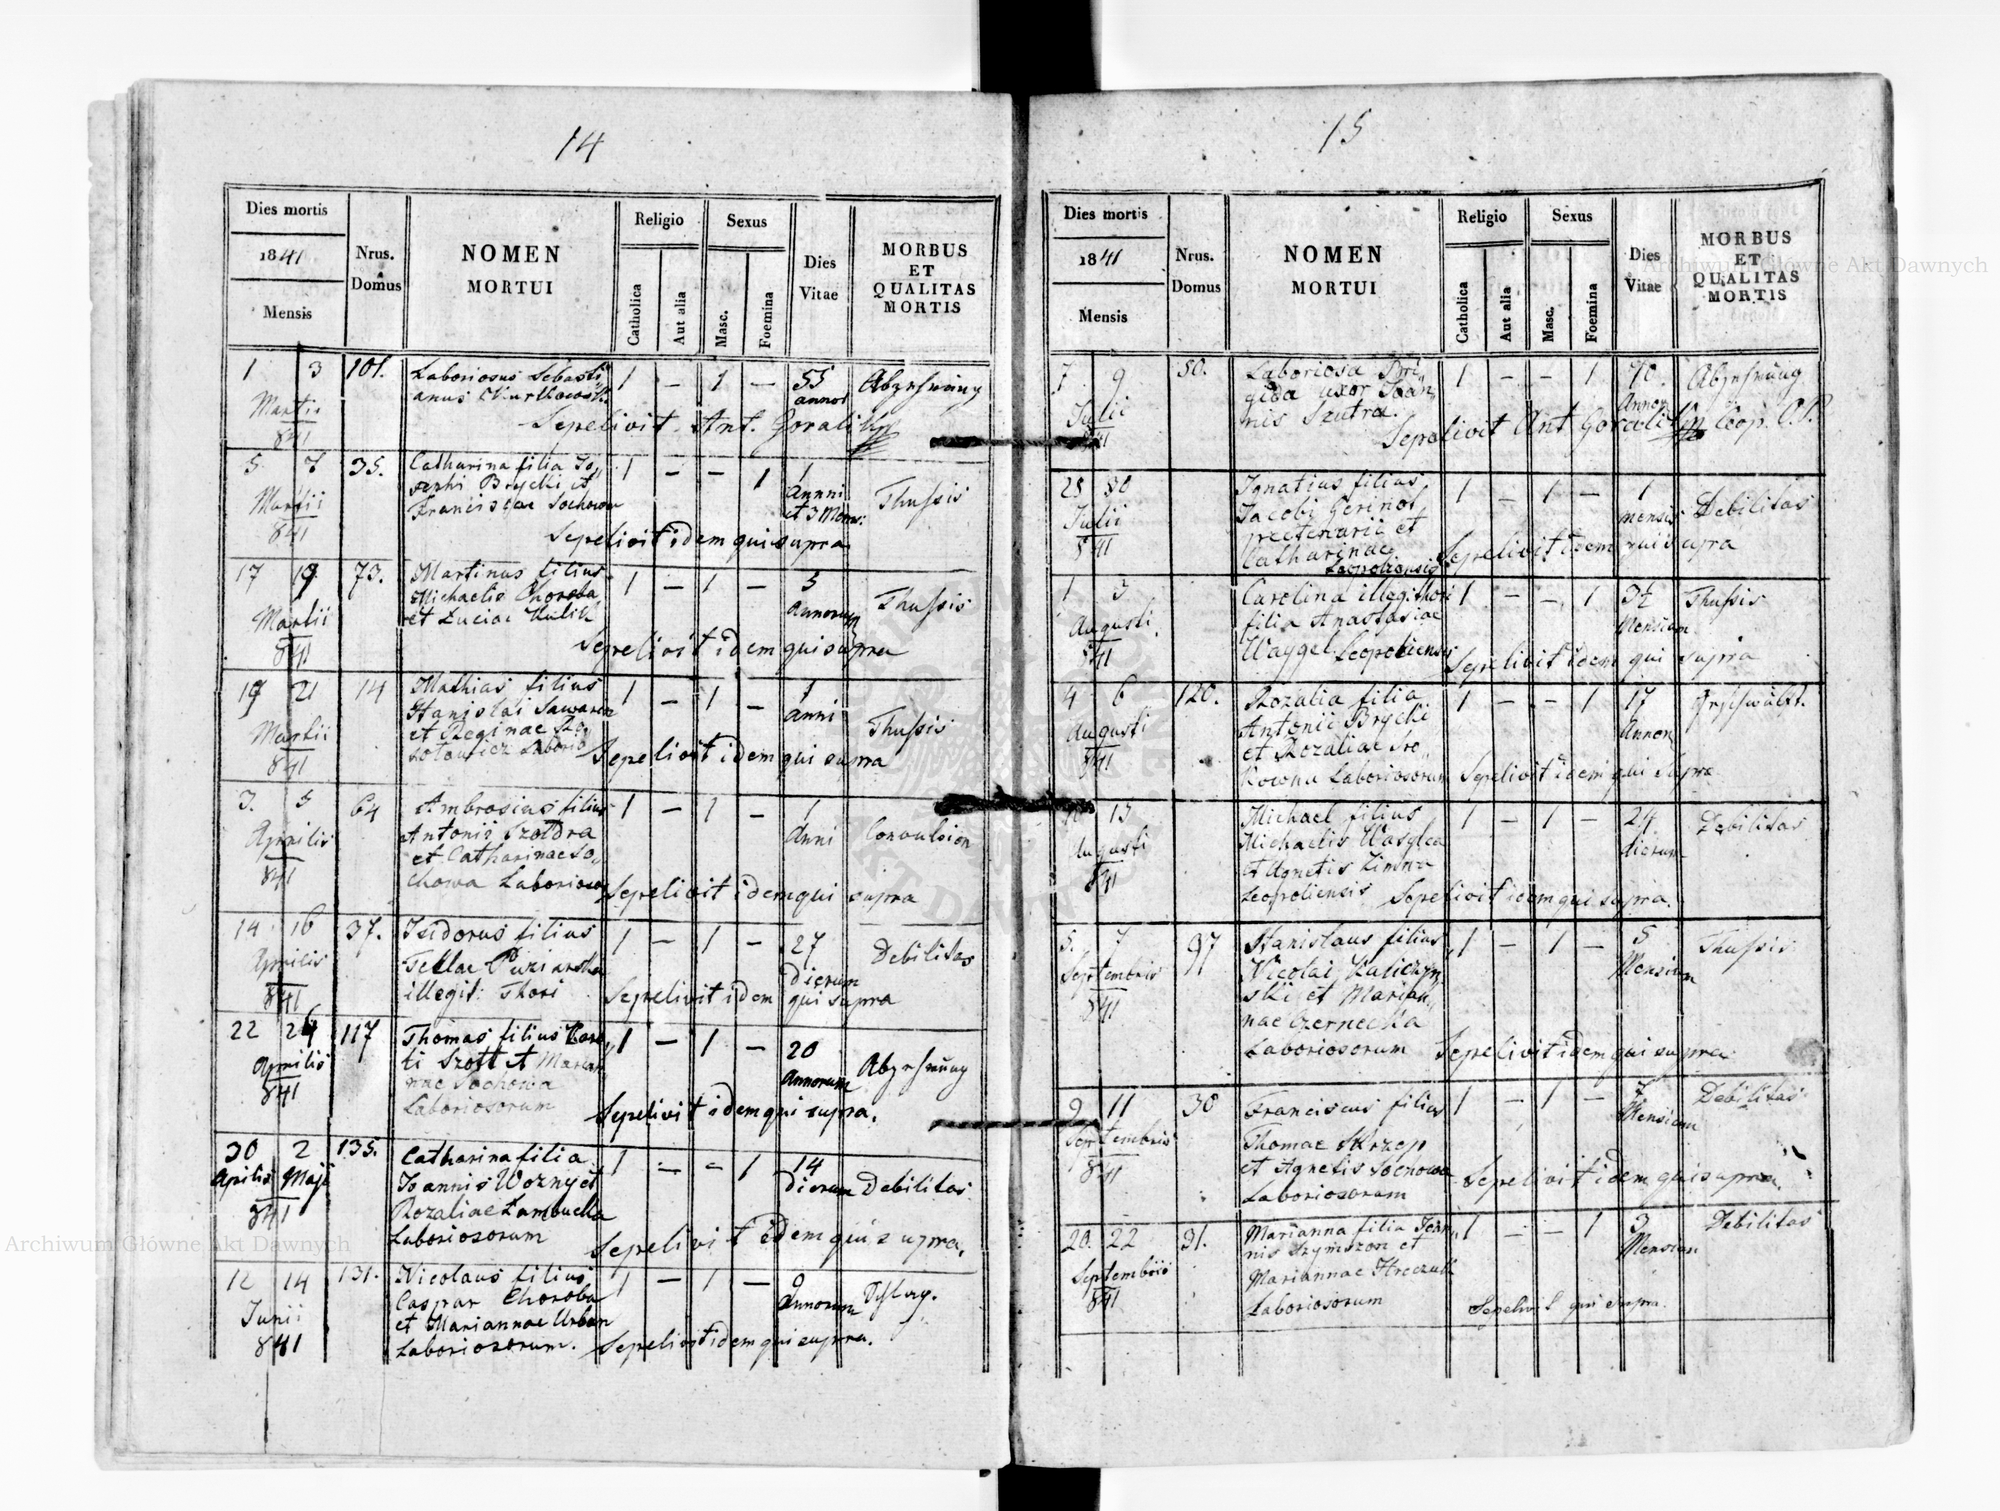 14
Dies mortis
1841
Mensis
Nrus.
Domus
NOMEN
MORTUI
Religio
Catholica
Aut alia
Sexus
Masc.
Foemina
Dies
Vitae
MORBUS
ET
QUALITAS
MORTIS
1 3 101. Laboriosus Sebasti 1 — 1 — 55 Abzehrung
Martii anus annor
841 Sepelivit Ant. Goralik
5. 7 35. Catharina filia Jo„ 1 — — 1 1 Thussis
Martii sephi Brycki et Anni
841 Franciscae Sochowa et 3 Mens:
Sepelivit idem qui supra
17 19 73. Martinus filius 1 — 1 — 5 Thussis
Martii Michaelis Choroba Annorum
841 et Luciae Kulik
Sepelivit idem qui supra
19 21 14 Mathias filius 1 — 1 — 1 Thussis
Martii Stanislai Anni
841 et Reginae
Sepelivit idem qui supra
3. 5 64 Ambrosius filius 1 — 1 — 1 Convulsion
Aprilis Antonii Szoldra Anni
841 et Catharinae So„
chowa Laborioso Sepelivit idem qui supra
14 16 37. Isidorus filius 1 — 1 — 27 Debilitas
Aprilis Teklae Dierum
841 illegit: Thori Sepelivit idem qui supra
22 24 117 Thomas filius 1 — 1 — 20 Abzehrung
Aprilis Szott et Marian Annorum
841 nae Sochowa
Laboriosorum Sepelivit idem qui supra.
30 2 135. Catharina filia 1 — — 1 14 Debilitas
Aprilis Maji Joannis Wozny et Dierum
841 Rozaliae
Laboriosorum Sepelivit idem qui supra.
12 14 131. Nicolaus filius 1 — 1 — 9
Junii Caspar Choroba Annorum
841 et Mariannae Urban
Laboriosorum. Sepelivit idem qui supra.
15
Dies mortis
1841
Mensis
Nrus.
Domus
NOMEN
MORTUI
Religio
Catholica
Aut alia
Sexus
Masc.
Foemina
Dies
Vitae
MORBUS
ET
QUALITAS
MORTIS
7 9 50. Laboriosa Bri„ 1 — — 1 40. Abzehrung
Julii gida uxor Joan„ Annor
841 nis Szutra. Sepelivit Ant Goralik Coop.
28 30 Ignatius filius 1 — 1 — 1 Debilitas
Julii Jacobi mensis
841 et
Catharinae
Leopoliensis Sepelivit idem qui supra
1 3 Carolina illegithori 1 — — 1 3½ Thussis
Augusti filia Anastasiae Mensium
841 Waygel Leopoliensis Sepelivit idem qui supra
4 6 120. Rozalia filia 1 — — 1 17
Augusti Antonii Brycki Annor
841 et Rozaliae Sro„
kowna Laboriosorum Sepelivit idem qui supra
13 Michael filius 1 — 1 — 24 Debilitas
Augusti Michaelis dierum
841 et Agnetis Zimna
Leopoliensis Sepelivit idem qui supra.
5. 7 97 Stanislaus filius 1 — 1 — 5 Thussis
Septembris Nicolai Kaliczyn Mensium
841 ski et Marian„
nae Czernecka
Laboriosorum Sepelivit idem qui supra
9 11 30 Franciscus filius 1 — 1 — 7 Debilitas
Septembris Thomae Skrzep Mensium
841 et Agnetis Sochowa
Laboriosorum Sepelivit idem qui supra.
20. 22 91. Marianna filia Joan„ 1 — — 1 3 Debilitas
Septembris nis Szymczon et Mensium
841 Mariannae
Laboriosorum Sepelivit qui supra.
Archiwum Główne Akt Dawnych
Archiwum Główne Akt Dawnych